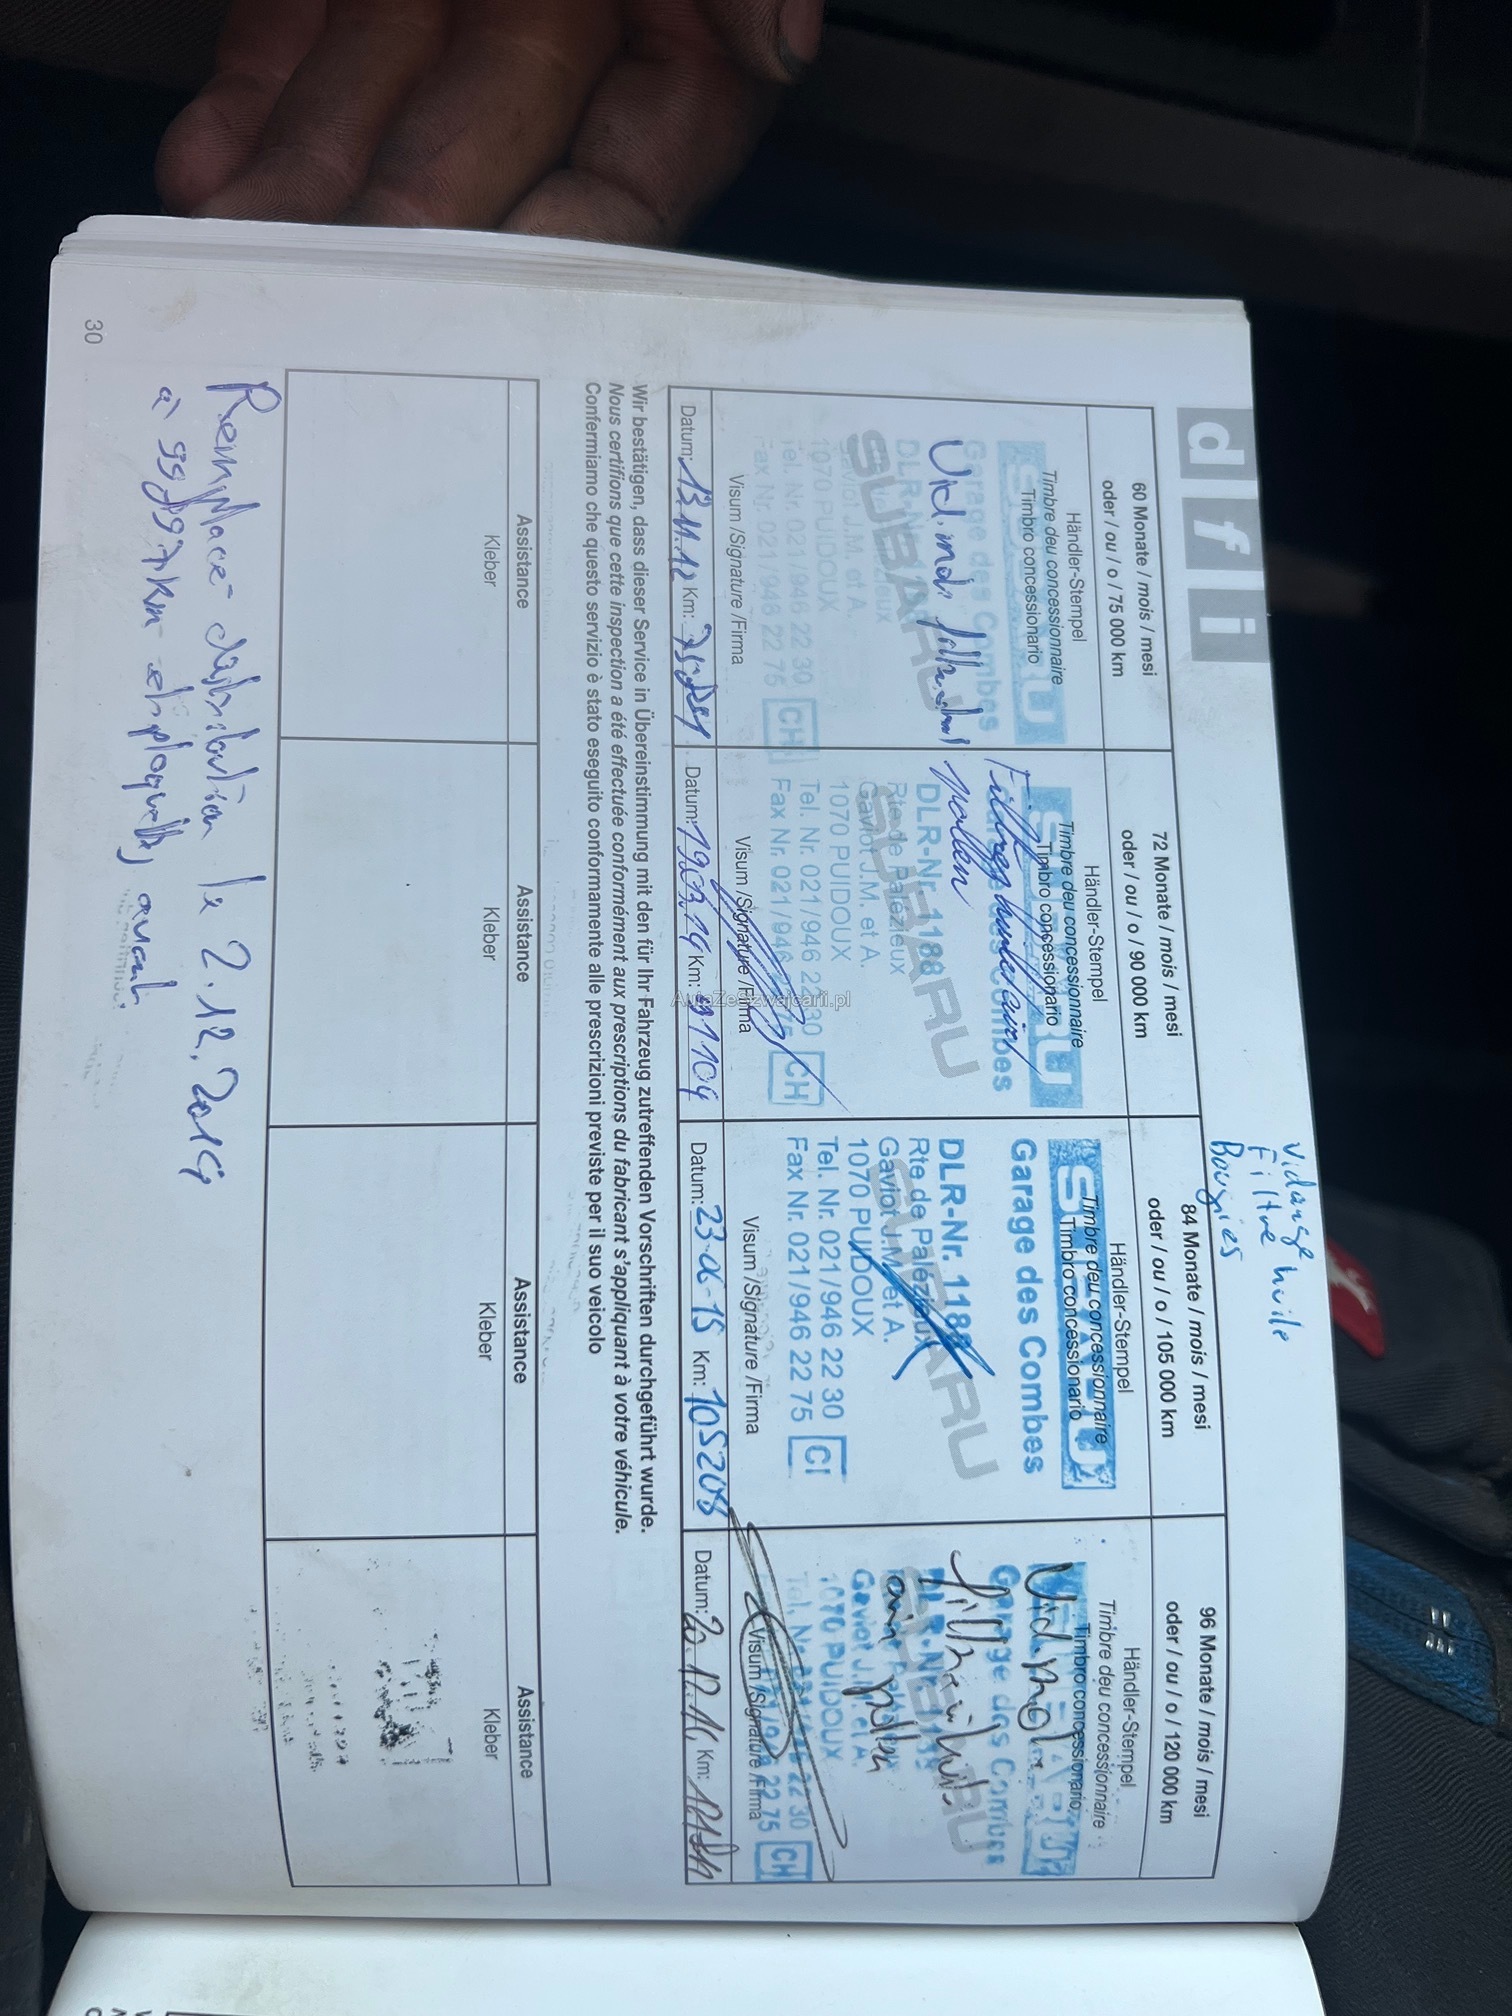 d f i
Vidange huile
Filtre
Bougies
60 Monate / mois / mesi
oder / ou / o / 75 000 km
Händler-Stempel
Timbre deu concessionnaire
Timbro concessionario
SUBARU
Garage des Combes
DLR-Nr. 1188
1070 PUIDOUX
Tel. Nr. 021/946 22 30
Fax Nr. 021/946 22 75 CH
Visum /Signature /Firma
Datum: 13.11.12 Km:
72 Monate / mois / mesi
oder / ou / o / 90 000 km
Händler-Stempel
Timbre deu concessionnaire
Timbro concessionario
pollen
DLR-Nr. 1188
Rte de Palézieux
Gaviot J.M. et A.
1070 PUIDOUX
SUBARU
Tel. Nr. 021/946 22 30
Fax Nr. 021/946 22 75 CH
Visum /Signature /Firma
Datum: Km: 91104
84 Monate / mois / mesi
oder / ou / o / 105 000 km
Händler-Stempel
Timbre deu concessionnaire
Timbro concessionario
SUBARU
Garage des Combes
DLR-Nr. 1188
Rte de Palézieux
Gaviot J.M. et A.
1070 PUIDOUX
SUBARU
Tel. Nr. 021/946 22 30
Fax Nr. 021/946 22 75 CI
Visum /Signature /Firma
Datum: 23-06-15 Km: 105208
96 Monate / mois / mesi
oder / ou / o / 120 000 km
Händler-Stempel
Timbre deu concessionnaire
Timbro concessionario
Garage des Combes
Gaviot J.M. et A.
pollen
1070 PUIDOUX
SUBARU
Tel. Nr. 021/946 22 30
22 75 CH
Visum /Signature /Firma
Datum: 20.12.16 Km:
Wir bestätigen, dass dieser Service in Übereinstimmung mit den für Ihr Fahrzeug zutreffenden Vorschriften durchgeführt wurde.
Nous certifions que cette inspection a été effectuée conformément aux prescriptions du fabricant s'appliquant à votre véhicule.
Confermiamo che questo servizio è stato eseguito conformamente alle prescrizioni previste per il suo veicolo
Assistance
Kleber
Assistance
Kleber
Assistance
Kleber
Assistance
Kleber
Remplacé distribution le 2.12.2014
à km et plaquettes avant
30
AutaZeSzwajcarii.pl